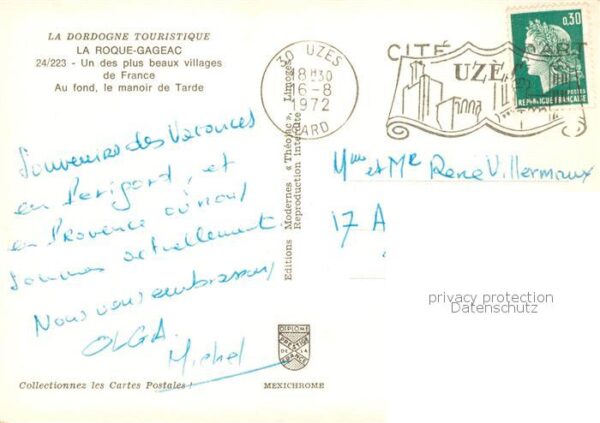 LA DORDOGNE TOURISTIQUE
LA ROQUE-GAGEAC
24/223 - Un des plus beaux villages
de France
Au fond, le manoir de Tarde
Souvenirs des Vacances
en Périgord, et
en Provence où nous
sommes actuellement.
Nous vous embrassons
OLGA
Michel
Collectionnez les Cartes Postales !
Editions Modernes « Théojac », Limoges
Reproduction interdite
DIPLOME
PRESTIGE
DE LA
FRANCE
MEXICHROME
30 UZES
18H30
16-8
1972
GARD
CITÉ D'ART
UZÈS
0,30
POSTES
REPUBLIQUE FRANÇAISE
Mme et Mr René Villermaux
17 A
privacy protection
Datenschutz